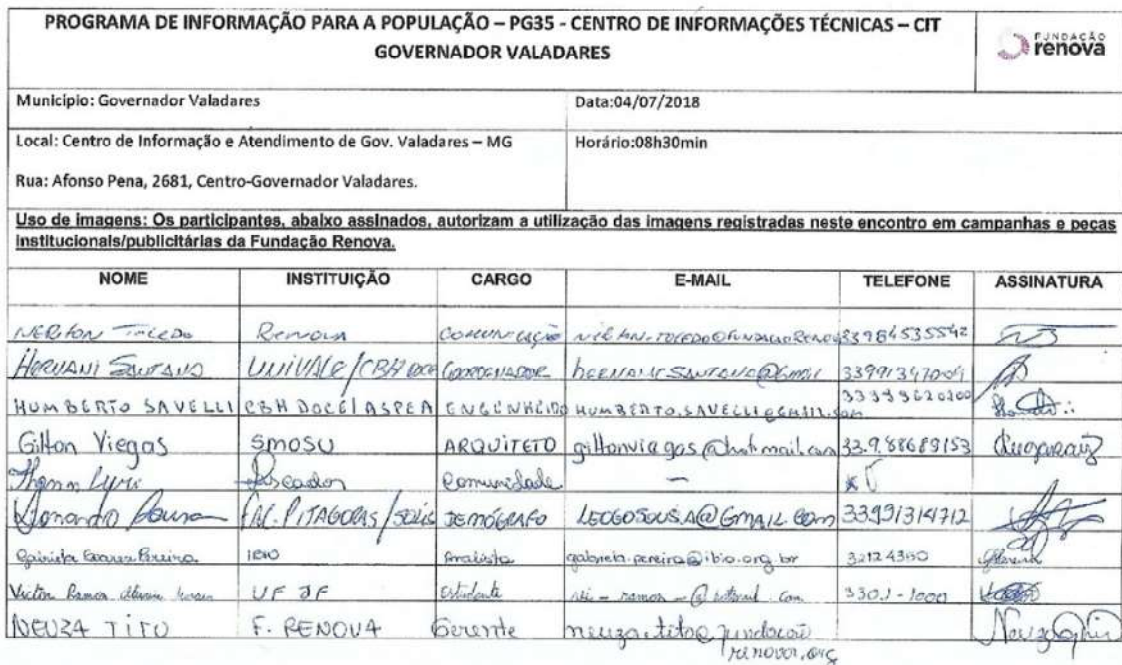 PROGRAMA DE INFORMAÇÃO PARA A POPULAÇÃO – PG35 - CENTRO DE INFORMAÇÕES TÉCNICAS – CIT
GOVERNADOR VALADARES
FUNDAÇÃO
renova
Municipio: Governador Valadares Data:04/07/2018
Local: Centro de Informação e Atendimento de Gov. Valadares – MG Horário:08h30min
Rua: Afonso Pena, 2681, Centro-Governador Valadares.
Uso de imagens: Os participantes, abaixo assinados, autorizam a utilização das imagens registradas neste encontro em campanhas e peças
institucionais/publicitárias da Fundação Renova.
NOME INSTITUIÇÃO CARGO E-MAIL TELEFONE ASSINATURA
NERITON TOLEDO RENOVA COMUNICAÇÃO 33984535542
HERNANI SANTANA UNIVALE/CBH DOCE COORDENADOR HERNANI.SANTANA@GMAIL
HUMBERTO SAVELLI CBH DOCE/ASPEA ENGENHEIRO HUMBERTO.SAVELLI@GMAIL.com
Gilton Viegas SMOSU ARQUITETO giltonviegas@hotmail.com 33.9.88689153
Lyri Pescador Comunidade –
Sousa FAC. PITAGORAS/ DEMÓGRAFO LEOGOSOUSA@GMAIL.COM 33991314712
Gabriela Pereira IBIO Analista gabriela.pereira@ibio.org.br 32124350
Victor Ramos UFJF Estudante 3301-1000
NEUZA TITO F. RENOVA Gerente neuza.tito@fundacao
renova.org